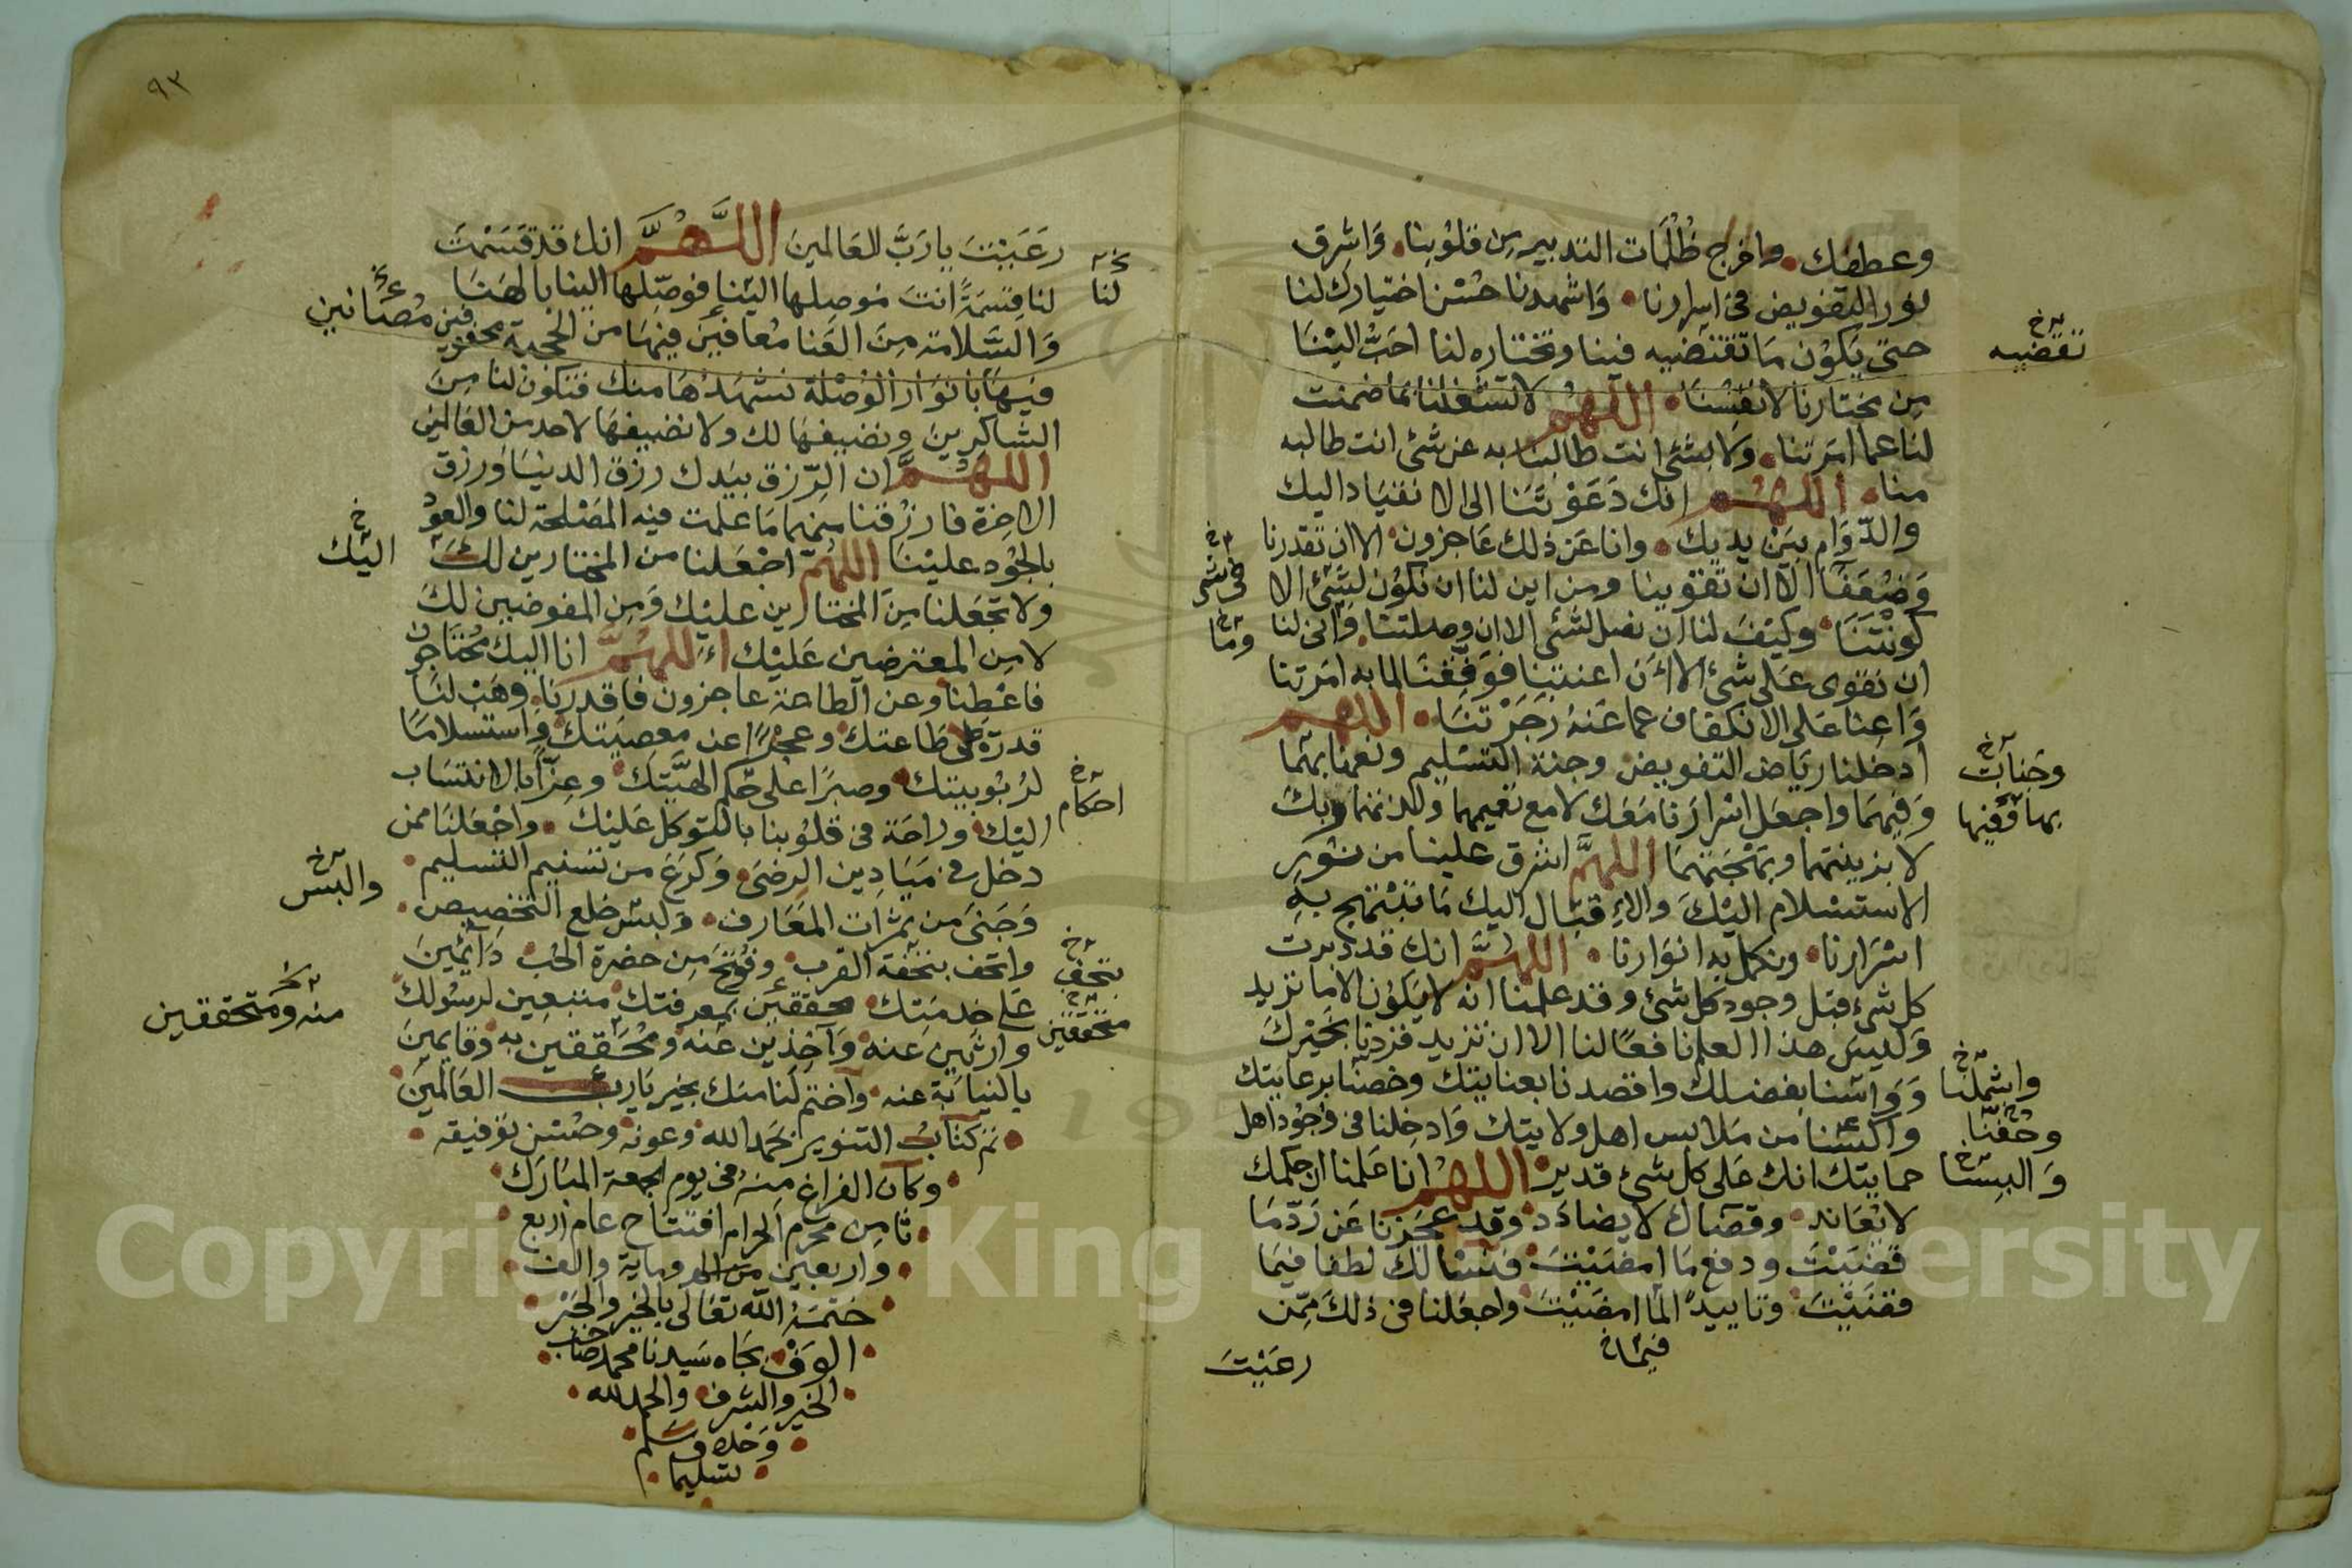 وعطفك واخرج ظلمات التدبير من قلوبنا واشرق
نور التفويض في اسرارنا واشهدنا حسن اختيارك لنا
حتى يكون ما تقتضيه فينا وتختاره لنا احب الينا
تقضيه خ
من مختارنا لانفسنا اللهم لا تشغلنا بما ضمنت
لنا عما امرتنا ولا بشئ انت طالبنا به عن شئ انت طالبه
منا اللهم انك دعوتنا الى الانقياد اليك
والدوام بين يديك وانا عن ذلك عاجزون الا ان تقدرنا
وضعفا الا ان تقوينا ومن اين لنا ان نكون لشئ الا
كونتنا وكيف لنا ان نصل لشئ الا ان وصلتنا وانى لنا
وما خ
ان نقوى على شئ الا ان اعنتنا فوفقنا لما به امرتنا
واعنا على الانكفاف عما عنه زجرتنا اللهم
ادخلنا رياض التفويض وجنة التسليم ونعمنا بهما
وجنات خ
وفيهما واجعل اسرارنا معك لا مع نعيمهما ولذتهما وبك
بها وفيها
لا بزينتهما وبهجتهما اللهم اشرق علينا من نور
الاستسلام اليك والاقبال اليك ما تبتهج به
اسرارنا وتكمل به انوارنا اللهم انك قد دبرت
كل شئ قبل وجود كل شئ وقد علمنا انه لا يكون الا ما تريد
وليس هذا العلم نافعا لنا الا ان تريد فزدنا بخيرك
وواسنا بفضلك واقصدنا بعنايتك وخصنا برعايتك
واشملنا خ
واكسنا من ملابس اهل ولايتك وادخلنا في وجود اهل
وحفنا
حمايتك انك على كل شئ قدير اللهم انا علمنا ان حكمك
والبسنا خ
لا يعاند وقضاك لا يضادد وقد عجزنا عن رد ما
قضيت ودفع ما امضيت فنسالك لطفا فيما
قضيت وتاييدا لما امضيت واجعلنا في ذلك ممن
فيما خ
رعيت
٩٣
رعيت يا رب العالمين اللهم انك قد قسمت
لنا قسمة انت موصلها الينا فوصلها الينا بالهنا
لنا
والسلامة من العنا معافين فيها من الحجبة محفوفين
مصانين
فيها بانوار الوصلة نشهدها منك فنكون لنا من
الشاكرين ونضيفها لك ولا نضيفها لاحد من العالمين
اللهم ان الرزق بيدك رزق الدنيا ورزق
الاخرة فارزقنا منهما ما علمت فيه المصلحة لنا والعود
بالجود علينا اللهم اجعلنا من المختارين لك
اليك خ
ولا تجعلنا من المختارين عليك ومن المفوضين لك
لا من المعترضين عليك اللهم انا اليك محتاجون
فاعطنا وعن الطاعة عاجزون فاقدرنا وهب لنا
قدرة على طاعتك وعجزا عن معصيتك واستسلاما
لربوبيتك وصبرا على حكم الهيتك وعزا بالانتساب
احكام خ
اليك وراحة في قلوبنا بالتوكل عليك واجعلنا ممن
دخل في ميادين الرضى وكرع من تسنيم التسليم
وجنى من ثمرات المعارف ولبس خلع التخصيص
والبس خ
واتحف بتحفة القرب وفتح من حضرة الحب دائمين
بتحف خ
على خدمتك محققين بمعرفتك متبعين لرسولك
متحققين خ
وارثين عنه وآخذين عنه ومحققين به وقايمين
منه ومتحققين
بالنيابة عنه واختم لنا منك بخير يا رب العالمين
تم كتاب التنوير بحمد الله وعونه وحسن توفيقه
وكان الفراغ منه في يوم الجمعة المبارك
ثامن محرم الحرام افتتاح عام اربع
واربعين وماية والف
ختمه الله تعالى بالخير والخير
الوفي بجاه سيدنا محمد صاحب
الخير والشرف والحمد لله
وحده وسلم
تسليما
Copyright © King Saud University
195